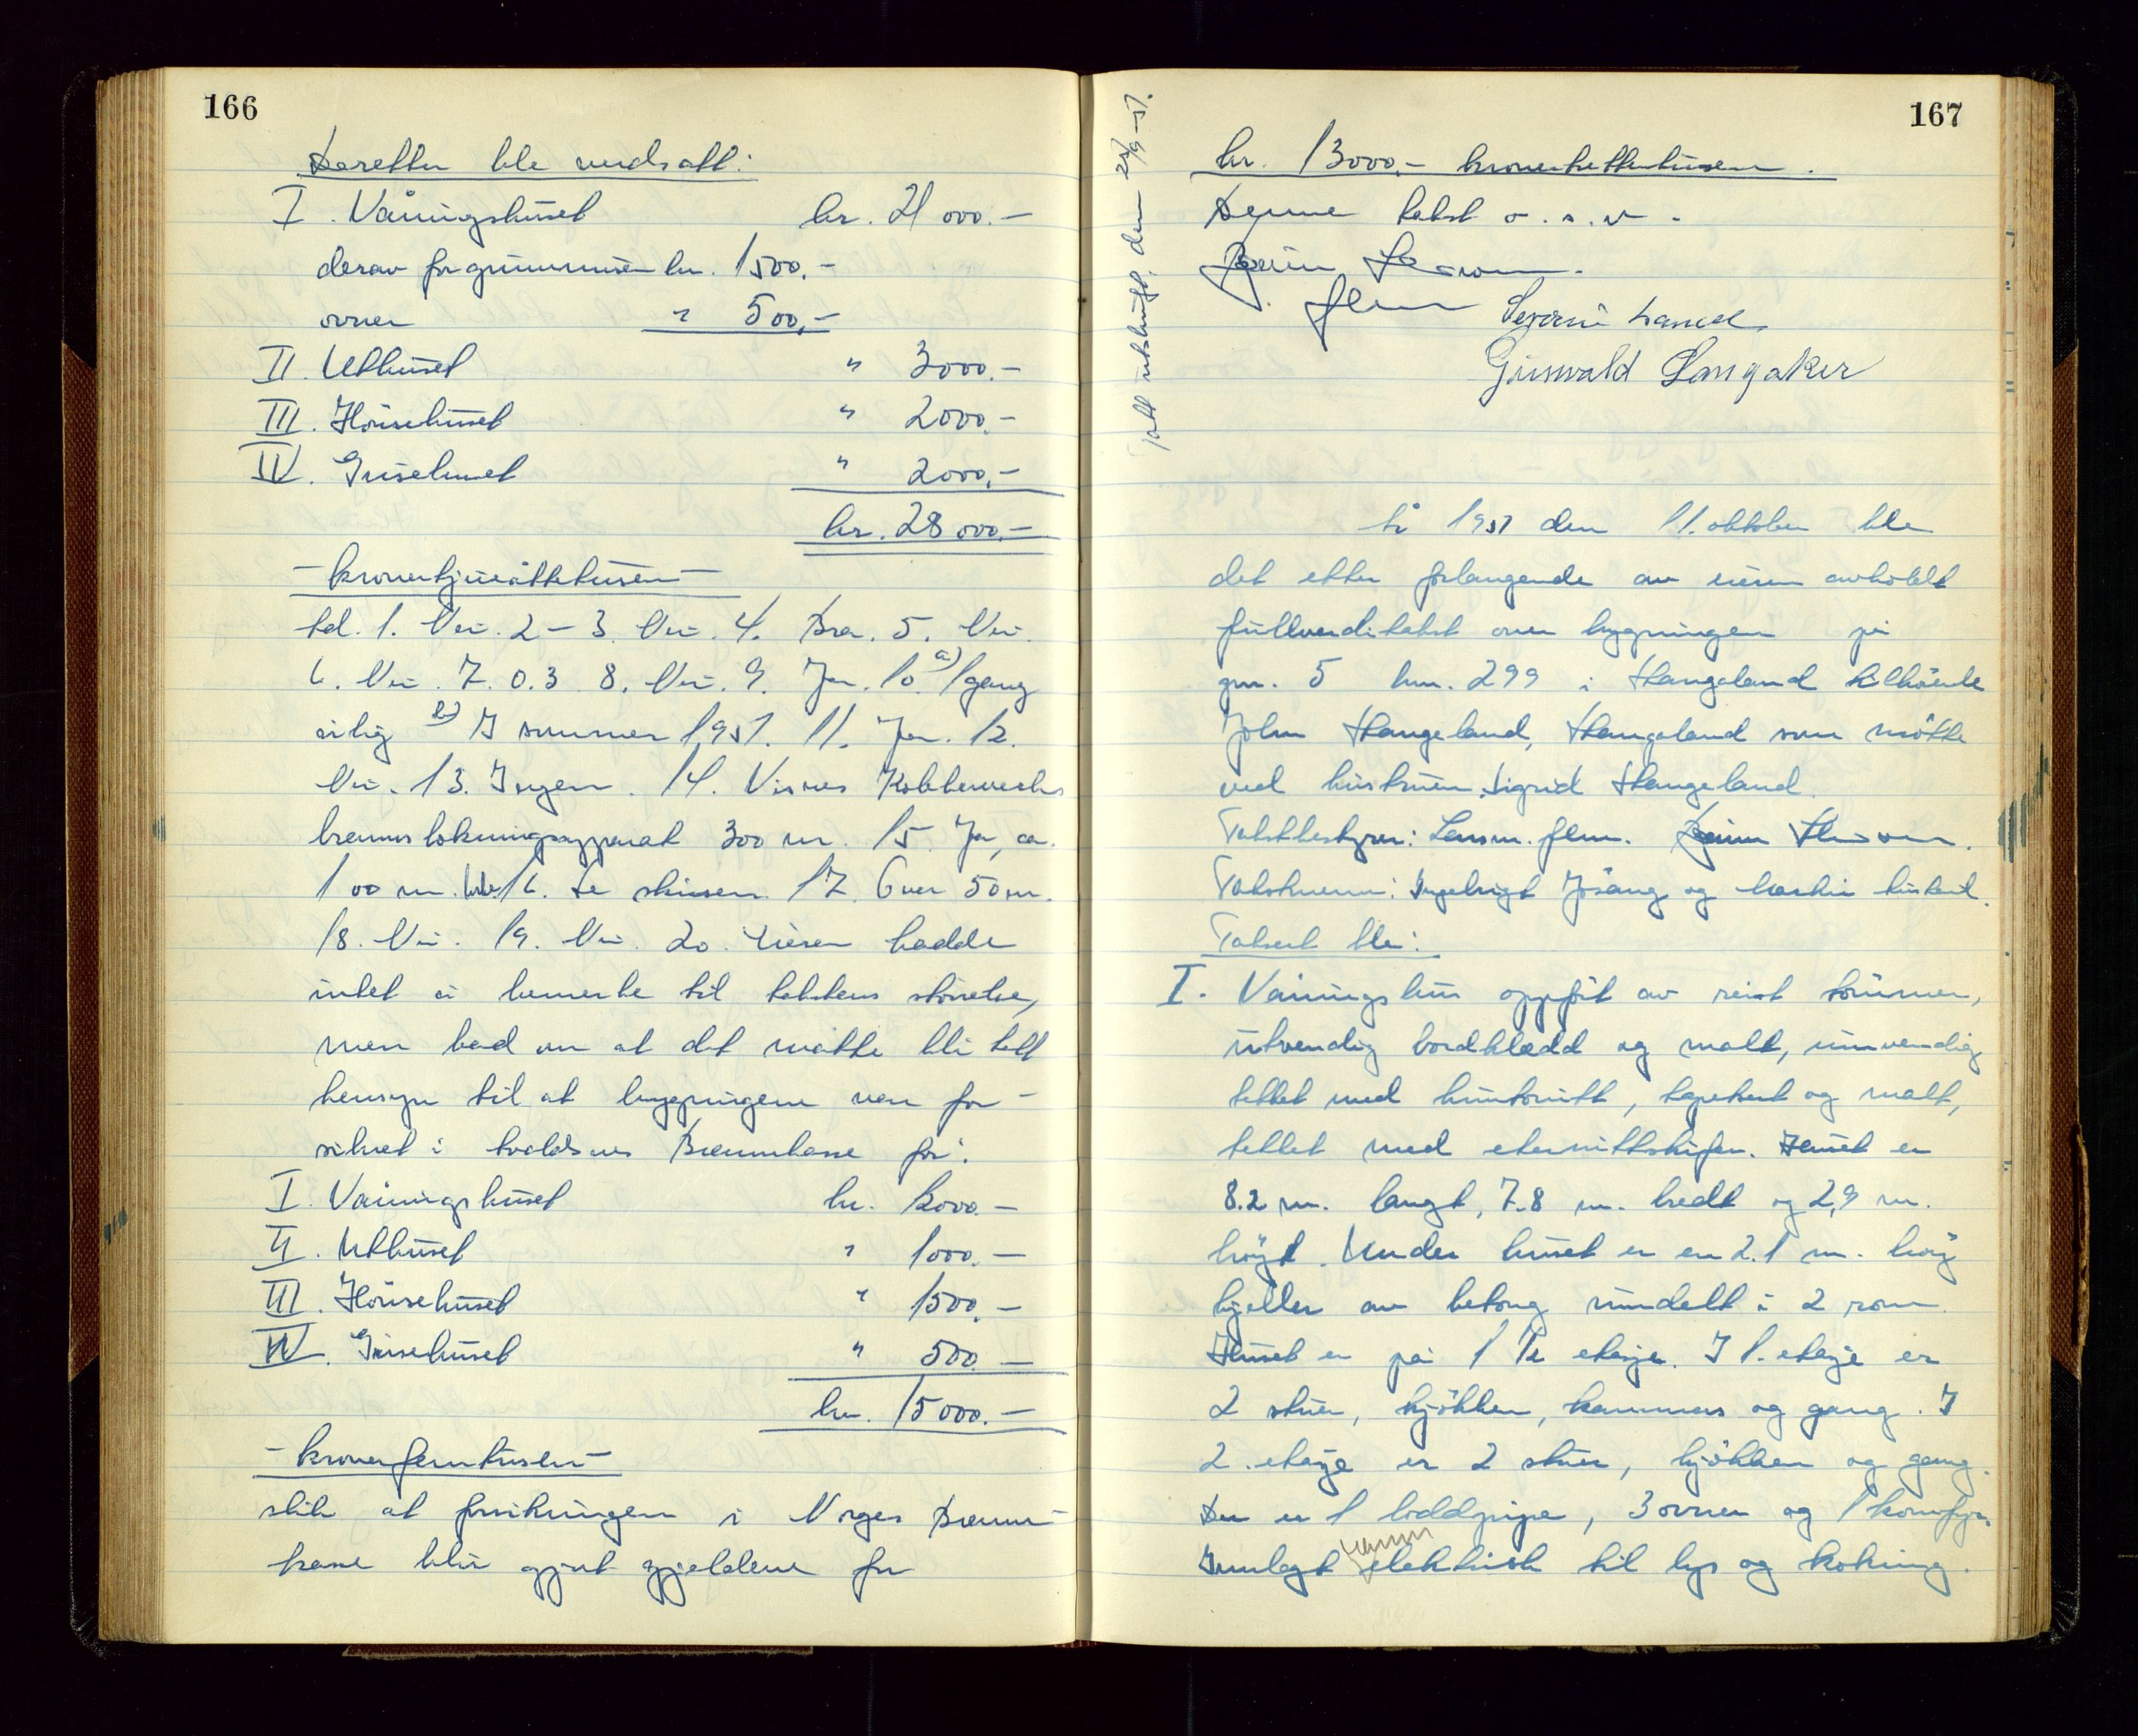 166
Deretter ble verdsatt:
I. Våningshuset kr. 21 000.-
derav for grunnmuren kr. 1500.-
ovner " 500,-
II. Uthuset " 3000.-
III. Hönsehuset " 2000.-
IV. Grisehuset " 2000,-
kr. 28 000.-
- kronertjueåttetusen -
Rel. 1. Nei. 2 - 3. Nei. 4. Bra. 5. Nei.
6. Nei. 7. 0.3 8. Nei. 9. Ja. 10. a) 1 gang
årlig b) I sommer 1951. 11. Ja. 12.
Nei. 13. Ingen. 14. Visnes Kobberverks
brannslokningsapparat 300 m. 15. Ja, ca.
100 m. 16. Se skissen 17. Over 50 m.
18. Nei. 19. Nei. 20. Eieren hadde
intet å bemerke til takstens størrelse,
men bad om at det måtte bli tatt
hensyn til at bygningene var for-
sikret i Avaldsnes Brannkasse for:
I. Våningshuset kr. 12000.-
II. Uthuset " 1000.-
III. Hönsehuset " 1500.-
IV. Grisehuset " 500.-
kr. 15 000.-
- kronerfemtusen -
slik at forsikringen i Norges Brann-
kasse blir gjort gjeldene for
167
kr. 13000.- kronertrettentusen.
Denne takst o.s.v.
Severin
Grimvald Langaker
Tatt utskrift den 22/9-51.
År 1951 den 11. oktober ble
det etter forlangende av eieren avholdt
fullverditakst over bygningen på
gnr. 5 bnr. 299 i Stangeland tilhörende
John Stangeland, Stangaland som møtte
ved hustruen Sigrid Stangeland.
Takstbestyrer: Lensm. flm.
Takstmenn: Ingebrigt Jösang og
Taksert ble:
I. Våningshus oppfört av reist tömmer,
utvendig bordkledd og malt, innvendig
tettet med huntonitt, tapetsert og malt,
tekket med eternittskifer. Huset er
8.2 m. langt, 7.8 m. bredt og 2,9 m.
högt. Under huset er en 2.1 m. höy
kjeller av betong inndelt i 2 rom.
Huset er på 1 1/2 etasje. I 1. etasje er
2 stuer, kjökken, kammers og gang. I
2. etasje er 2 stuer, kjökken og gang.
Der er 1 loddpipe, 3 ovner og 1 komfyr.
Innlagt elektrisk til lys og koking.